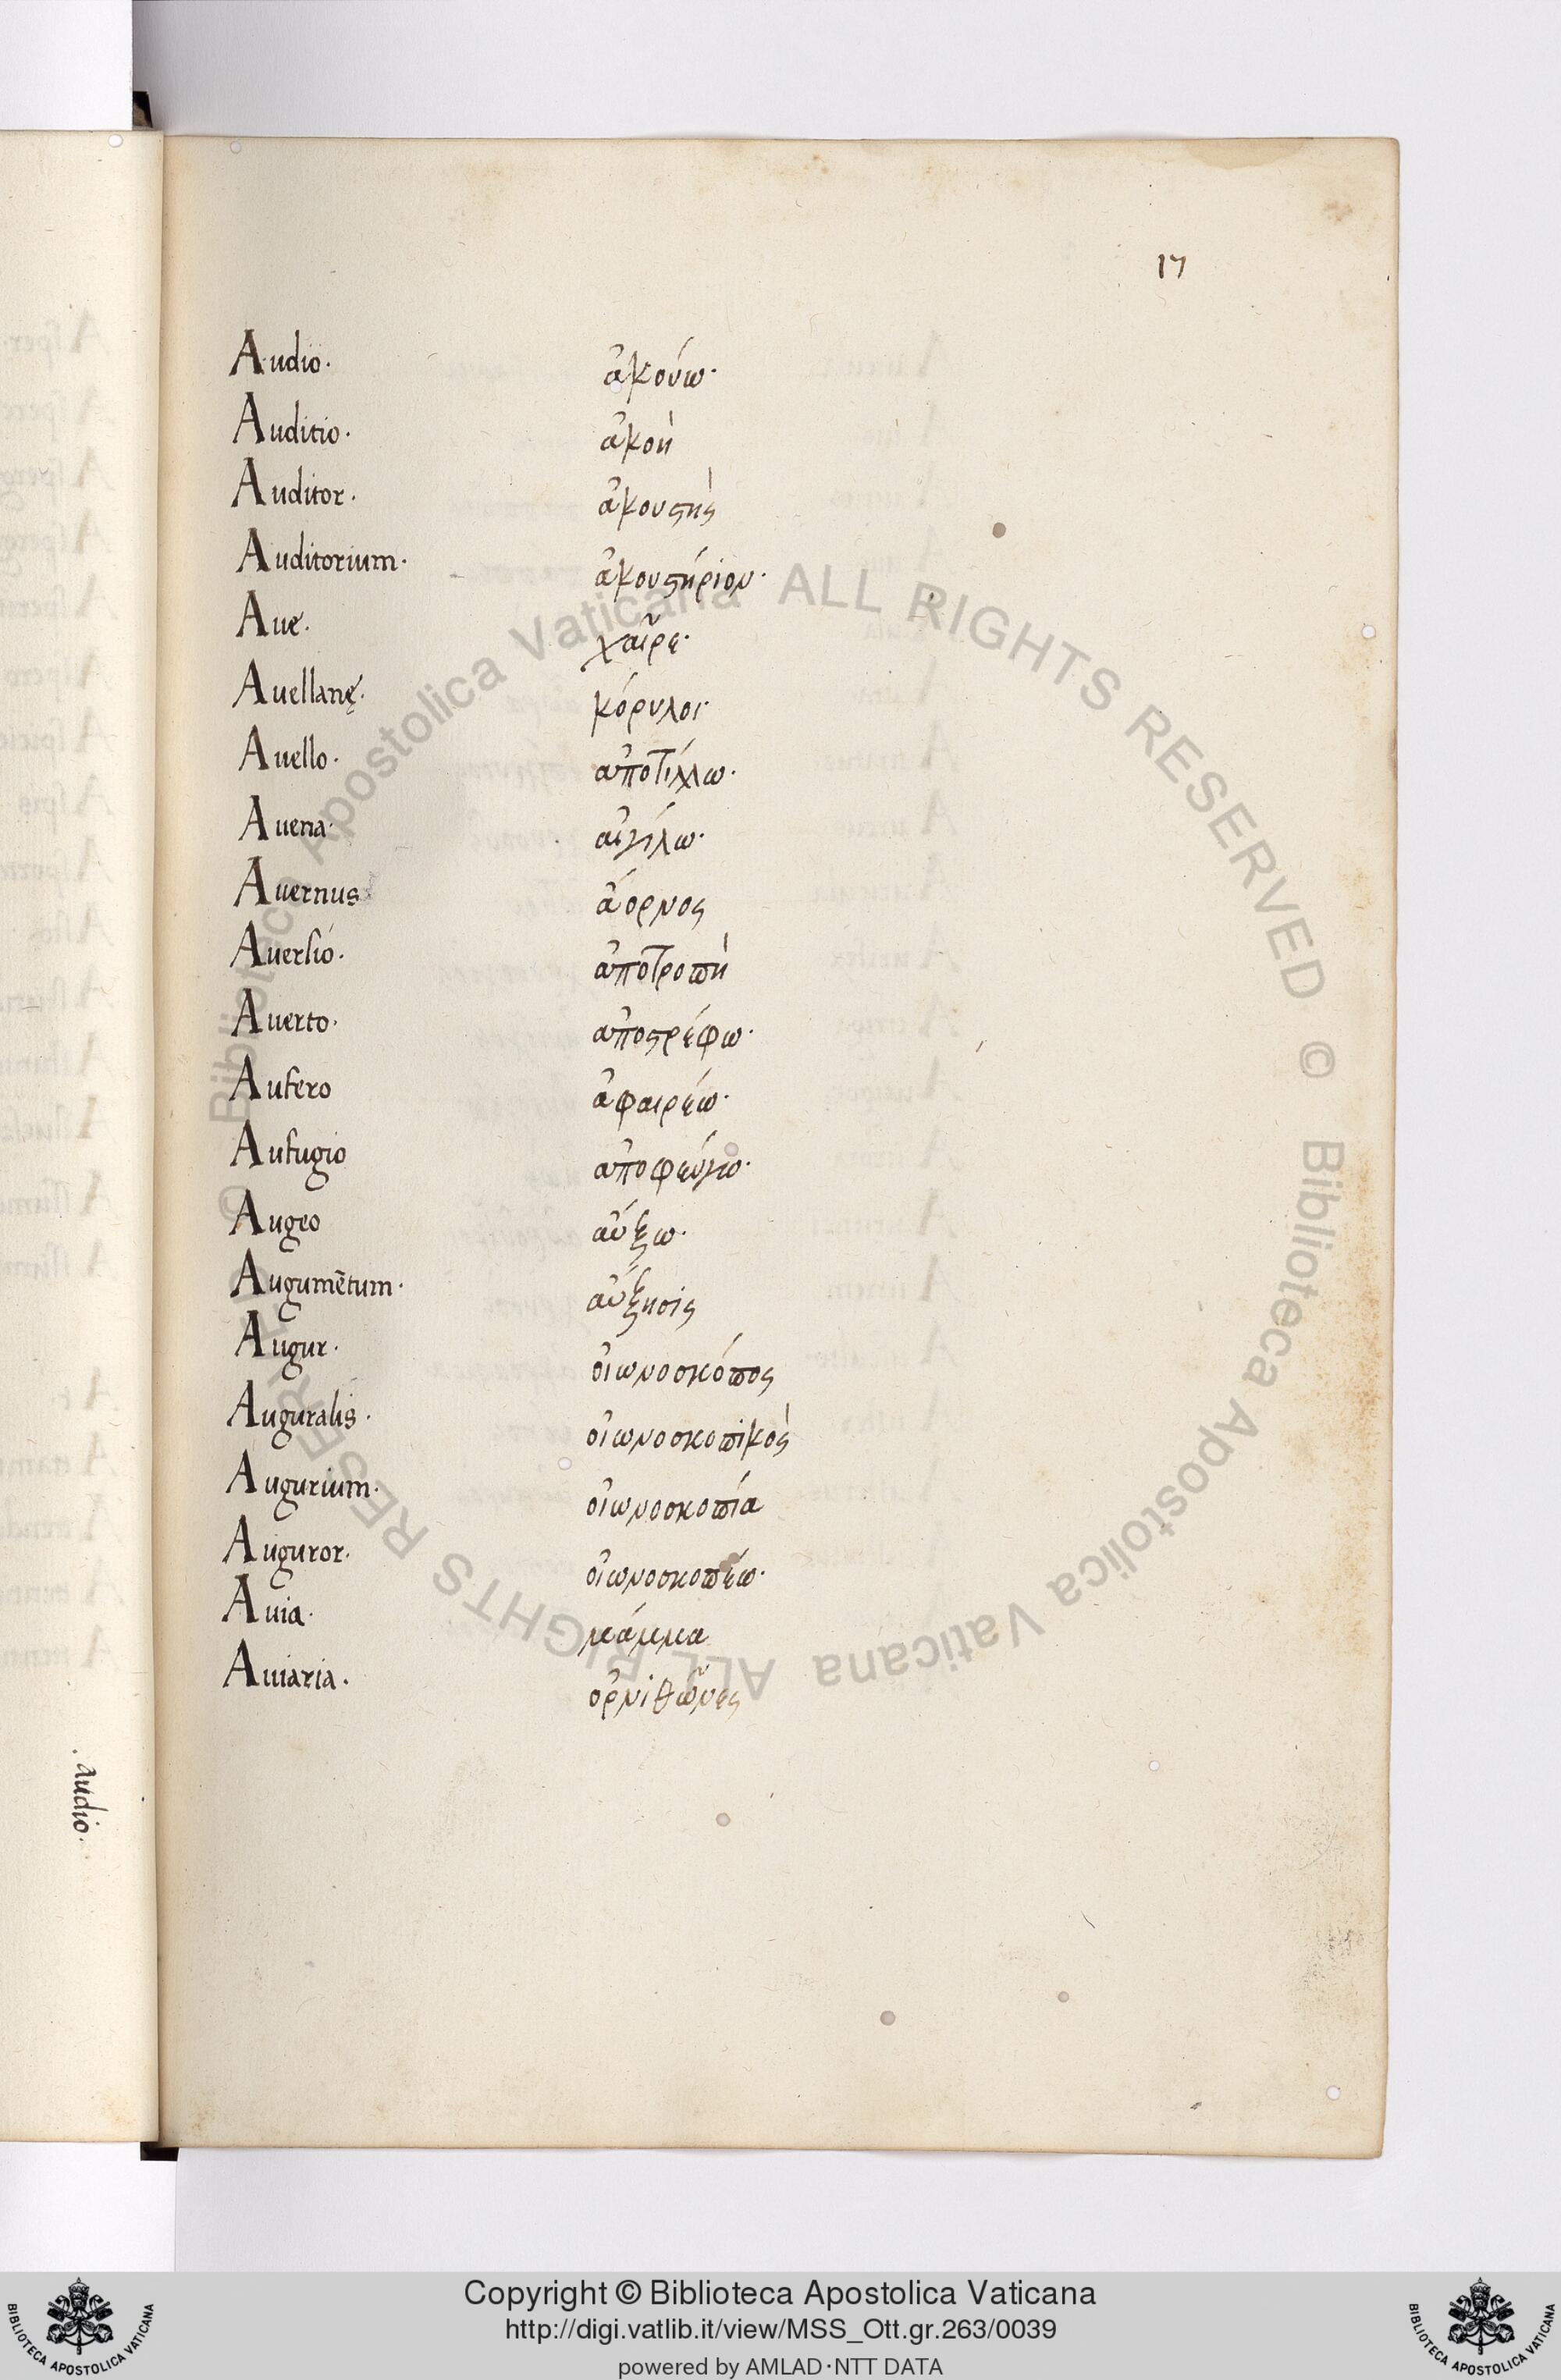 17
Audio· ἀκούω·
Auditio· ἀκοὴ
Auditor· ἀκουστὴς
Auditorium· ἀκουστήριον·
Aue· χαῖρε·
Auellanę· κόρυλοι·
Auello· ἀποτίλλω·
Auena· αἰγίλω·
Auernus ἄορνος
Auersio· ἀποτροπὴ
Auerto· ἀποστρέφω·
Aufero ἀφαιρέω·
Aufugio ἀποφεύγω·
Augeo αὔξω·
Augumētum· αὔξησις
Augur· οἰωνοσκόπος
Auguralis· οἰωνοσκοπικὸς
Augurium· οἰωνοσκοπία
Auguror· οἰωνοσκοπέω·
Auia· μάμμα
Auiaria· ὀρνιθῶνες
·audio·
© Biblioteca Apostolica Vaticana ALL RIGHTS RESERVED © Biblioteca Apostolica Vaticana ALL RIGHTS RESERVED
Copyright © Biblioteca Apostolica Vaticana
http://digi.vatlib.it/view/MSS_Ott.gr.263/0039
powered by AMLAD·NTT DATA
BIBLIOTECA APOSTOLICA VATICANA
BIBLIOTECA APOSTOLICA VATICANA